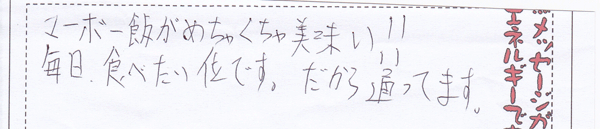 マーボー飯がめちゃくちゃ美味い!!
毎日、食べたい位です。だから通ってます。
メッセージが
エネルギーで